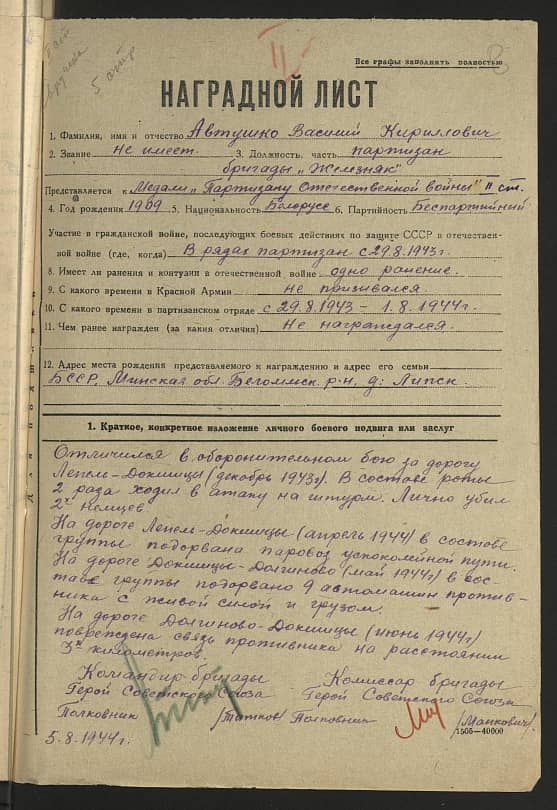 II
5 отр
Все графы заполнять полностью
НАГРАДНОЙ ЛИСТ
1. Фамилия, имя и отчество Автушко Василий Кириллович
2. Звание не имеет. 3. Должность, часть партизан
бригады „Железняк"
Представляется к Медали „Партизану Отечественной войны" II ст.
4. Год рождения 1909 5. Национальность Белорусс 6. Партийность Беспартийный
Участие в гражданской войне, последующих боевых действиях по защите СССР и отечествен-
ной войне (где, когда) В рядах партизан с 29.8.1943г.
8. Имеет ли ранения и контузии в отечественной войне одно ранение.
9. С какого времени в Красной Армии не призывался
10. С какого времени в партизанском отряде с 29.8.1943 – 1.8.1944г.
11. Чем ранее награжден (за какия отличия) Не награждался.
12. Адрес места рождения представляемого к награждению и адрес его семьи
БССР, Минская обл. Бегомльск. р-н. д: Липск.
1. Краткое, конкретное изложение личного боевого подвига или заслуг
Отличился в оборонительном бою за дорогу
Лепель-Докшицы (декабрь 1943г). В составе роты
2 раза ходил в атаку на штурм. Лично убил
2х немцев.
На дороге Лепель-Докшицы (апрель 1944) в составе
группы подорвана паровоз узкоколейной пути.
На дороге Докшицы-Долгиново (май 1944г) в сос-
таве группы подорвано 9 автомашин против-
ника с живой силой и грузом.
На дороге Долгиново-Докшицы (июнь 1944г)
повреждена связь противника на расстоянии
3х километров.
Командир бригады Комиссар бригады
Герой Советского Союза Герой Советского Союза
Полковник /Титков Полковник /Манкович/
5.8.1944г. 1505-40000